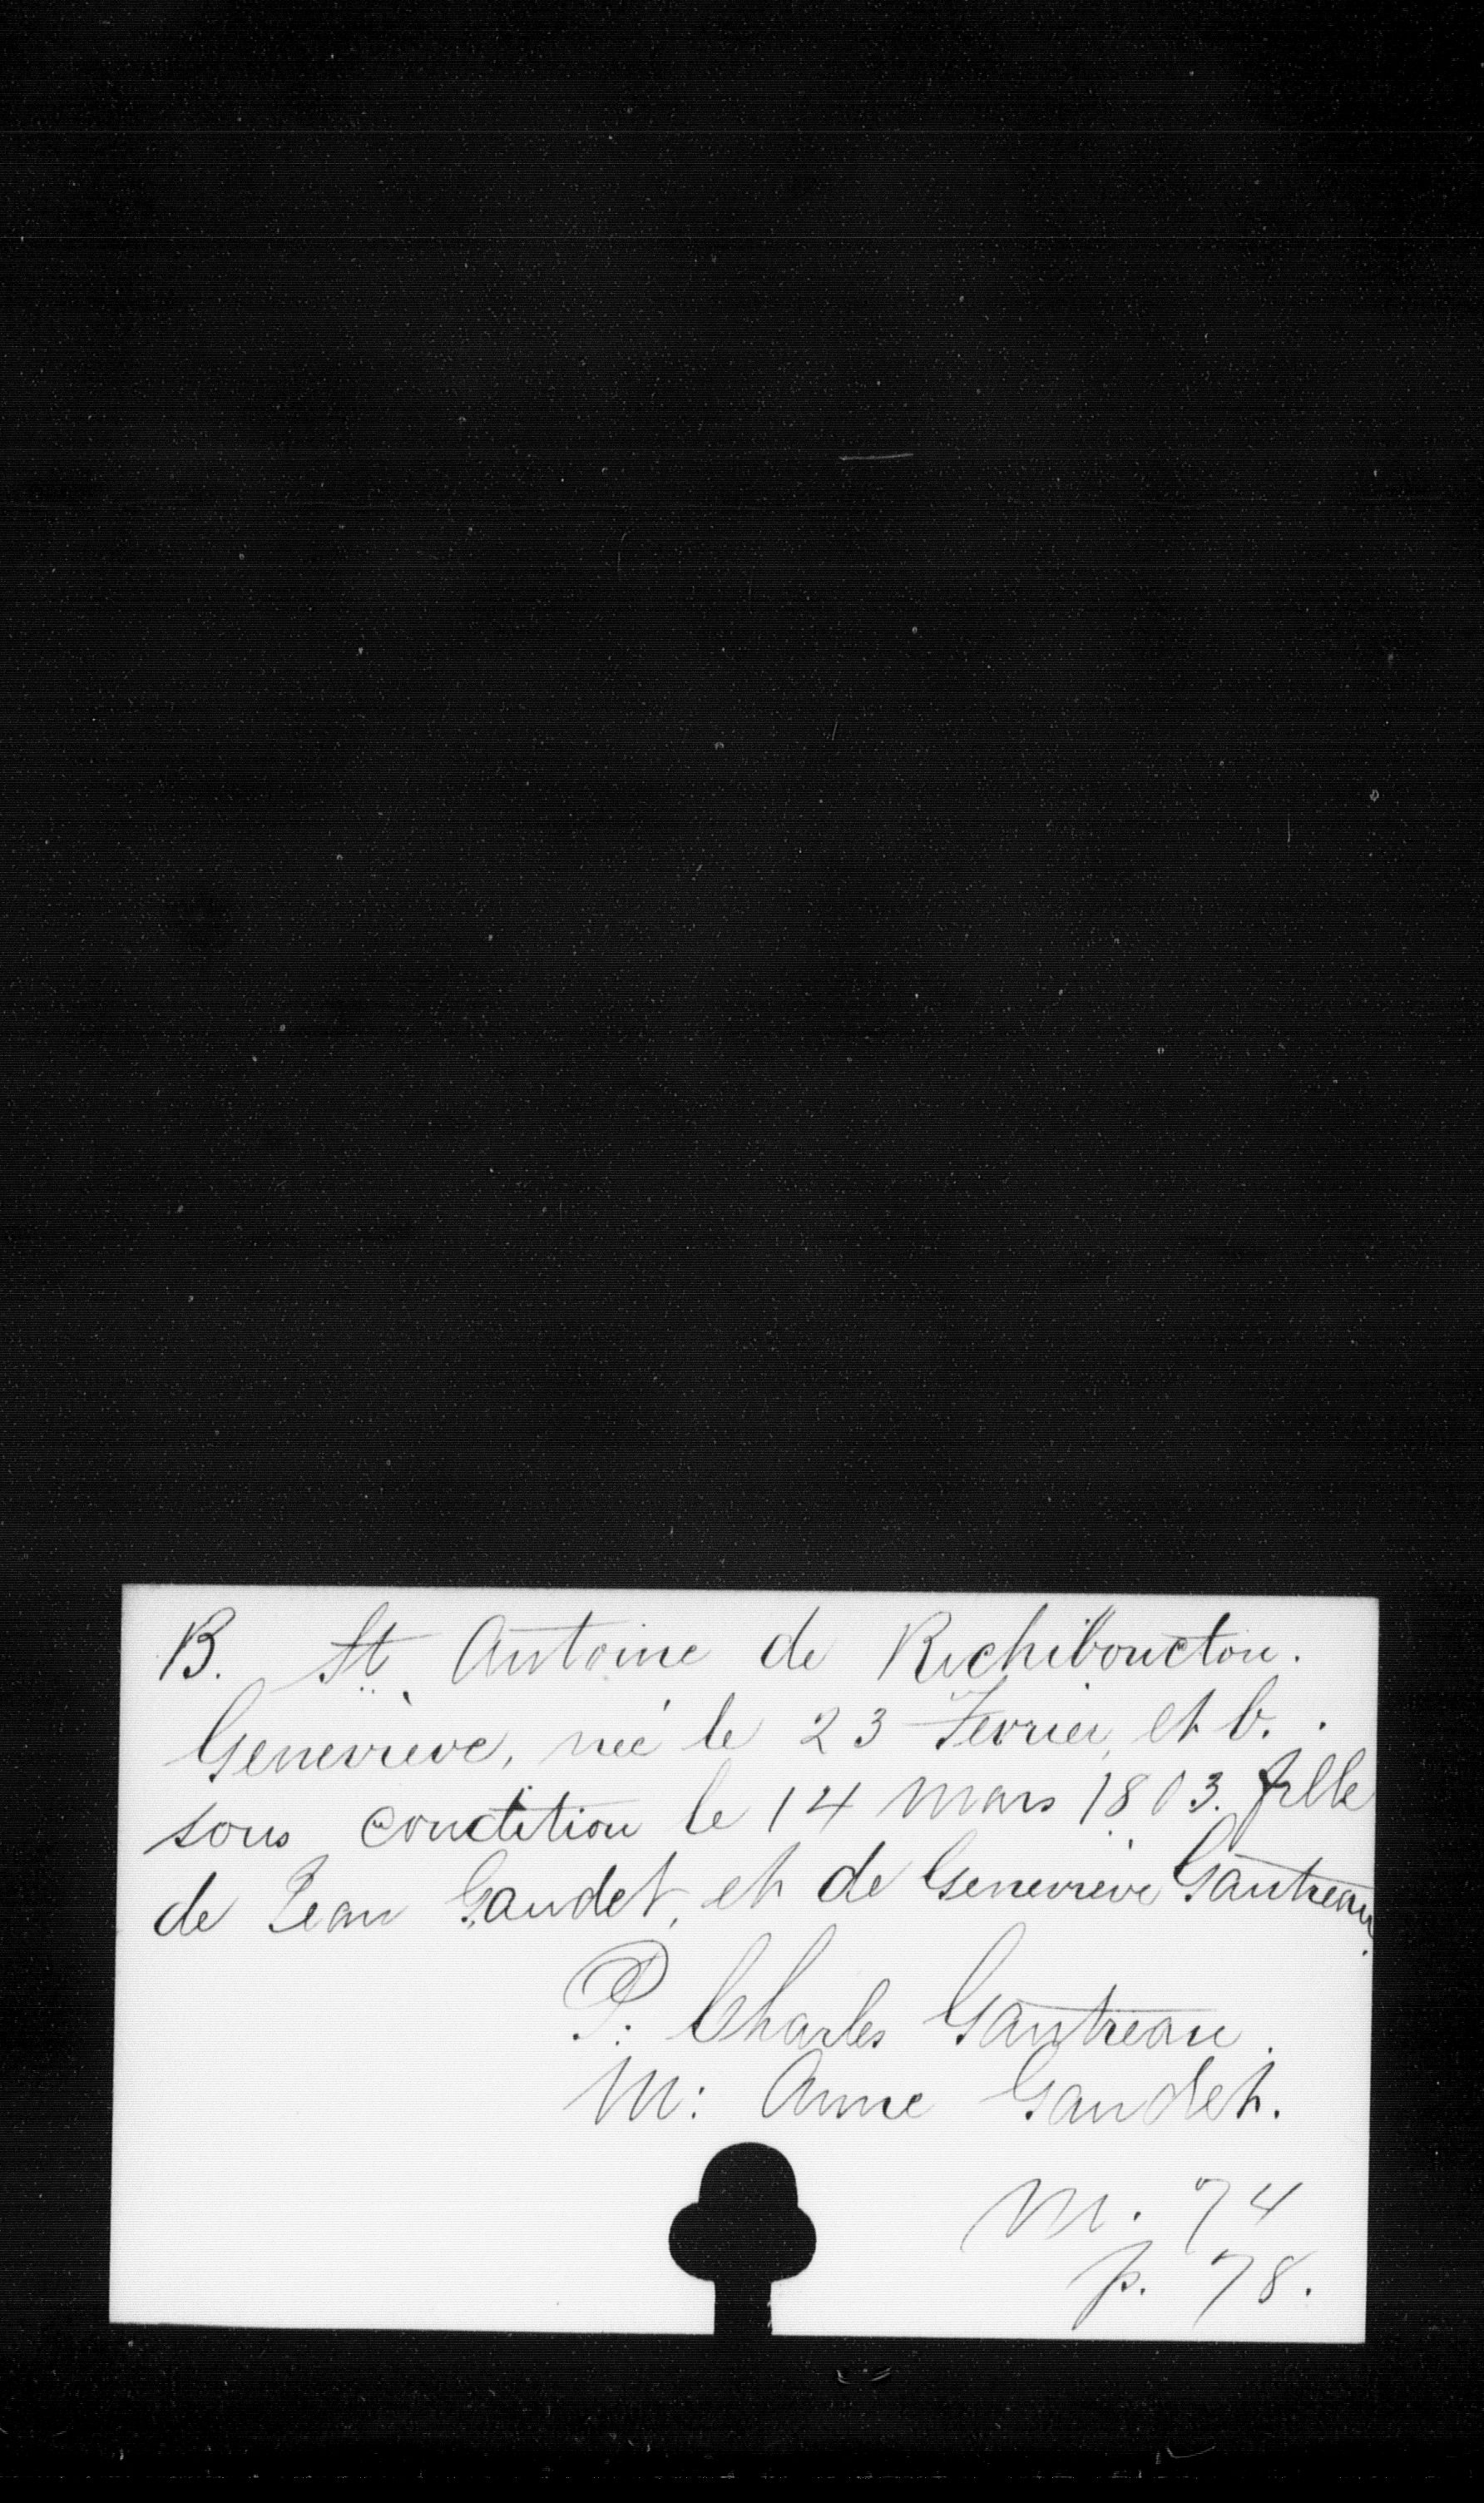 B. St Antoine de Richibouctou.
Geneviève, née le 23 Fevrier, et b.
sous condition le 14 Mars 1803. fille
de Jean Gaudet, et de Geneviève Gautreau.
P: Charles Gautreau.
M: Anne Gaudet.
M. 74
p. 78.